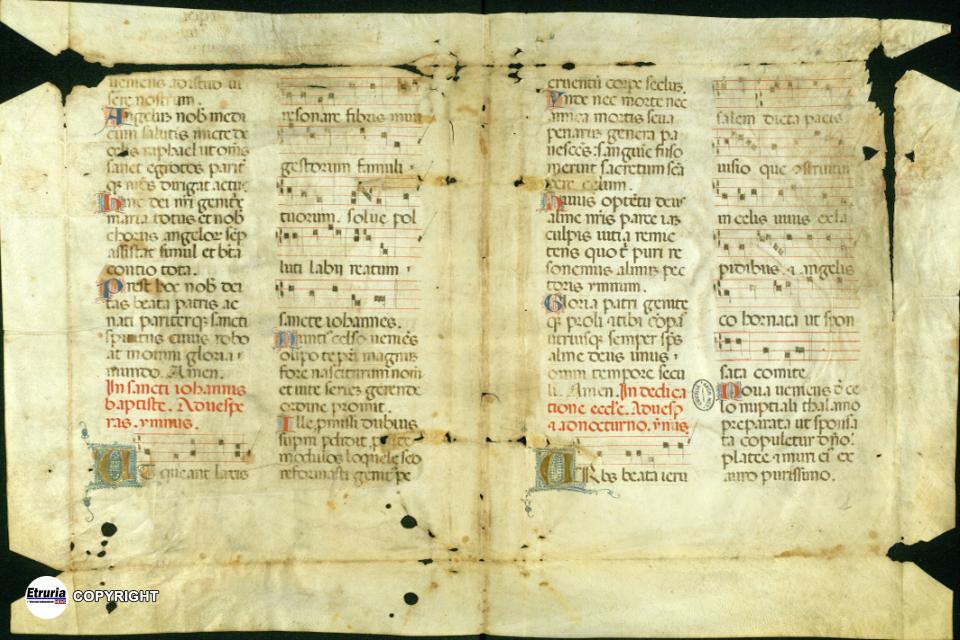 sere nostrum.
Angelus nob medi
cus salutis
celis raphael ut oms
sanet egrotos parit
dirigat actus
dei nri genitrix
maria totus et nob
chorus angelor sep
assistat simul et bta
contio tota.
Prest hoc nob dei
tas beata patris ac
nati pariterq; sancti
spiritus cuius rebo
at in omni gloria
mundo. Amen.
In sancti iohannis
baptiste. Ad uespe
ras. ymnus.
UT queant laxis
resonare fibris mira
gestorum famuli
tuorum. solue pol
luti labii reatum.
sancte iohannes.
Nunti celso ueniens
olipo te pri magnus
fore nasciturum nom
et uite seriez gerende
ordine promit.
Ille pmissi dubius
supni pdidit prpte
modulos loquele sed
reformasti genit pe
cruentu corpe seclus.
Vnde nec morte nec
amica mortis seua
penarus genera pa
uesces: sanguie fuso
merunt sacretum
celum.
Huius optetu deus
alme nris parce ia
culpis uitia remit
tens quo t puri re
sonemus almus pec
toris ymnum.
Gloria patri genite
q; proli & tibi copa
utriusq; semper sps
alme deus unus
omni tempore secu
li. Amen. In dedica
tione eccle. Ad uesp
& ad nocturno. ymus
URbs beata ieru
salem dicta pacis
uisio que struitur
in celis uiuis ex la
pidibus. & angelis
co hornata ut spon
sata comite
Noua ueniens e ce
lo nuptiali thalamo
preparata ut sponsa
ta copuletur dno.
platee & muri ei ex
auro purissimo.
Etruria
COPYRIGHT